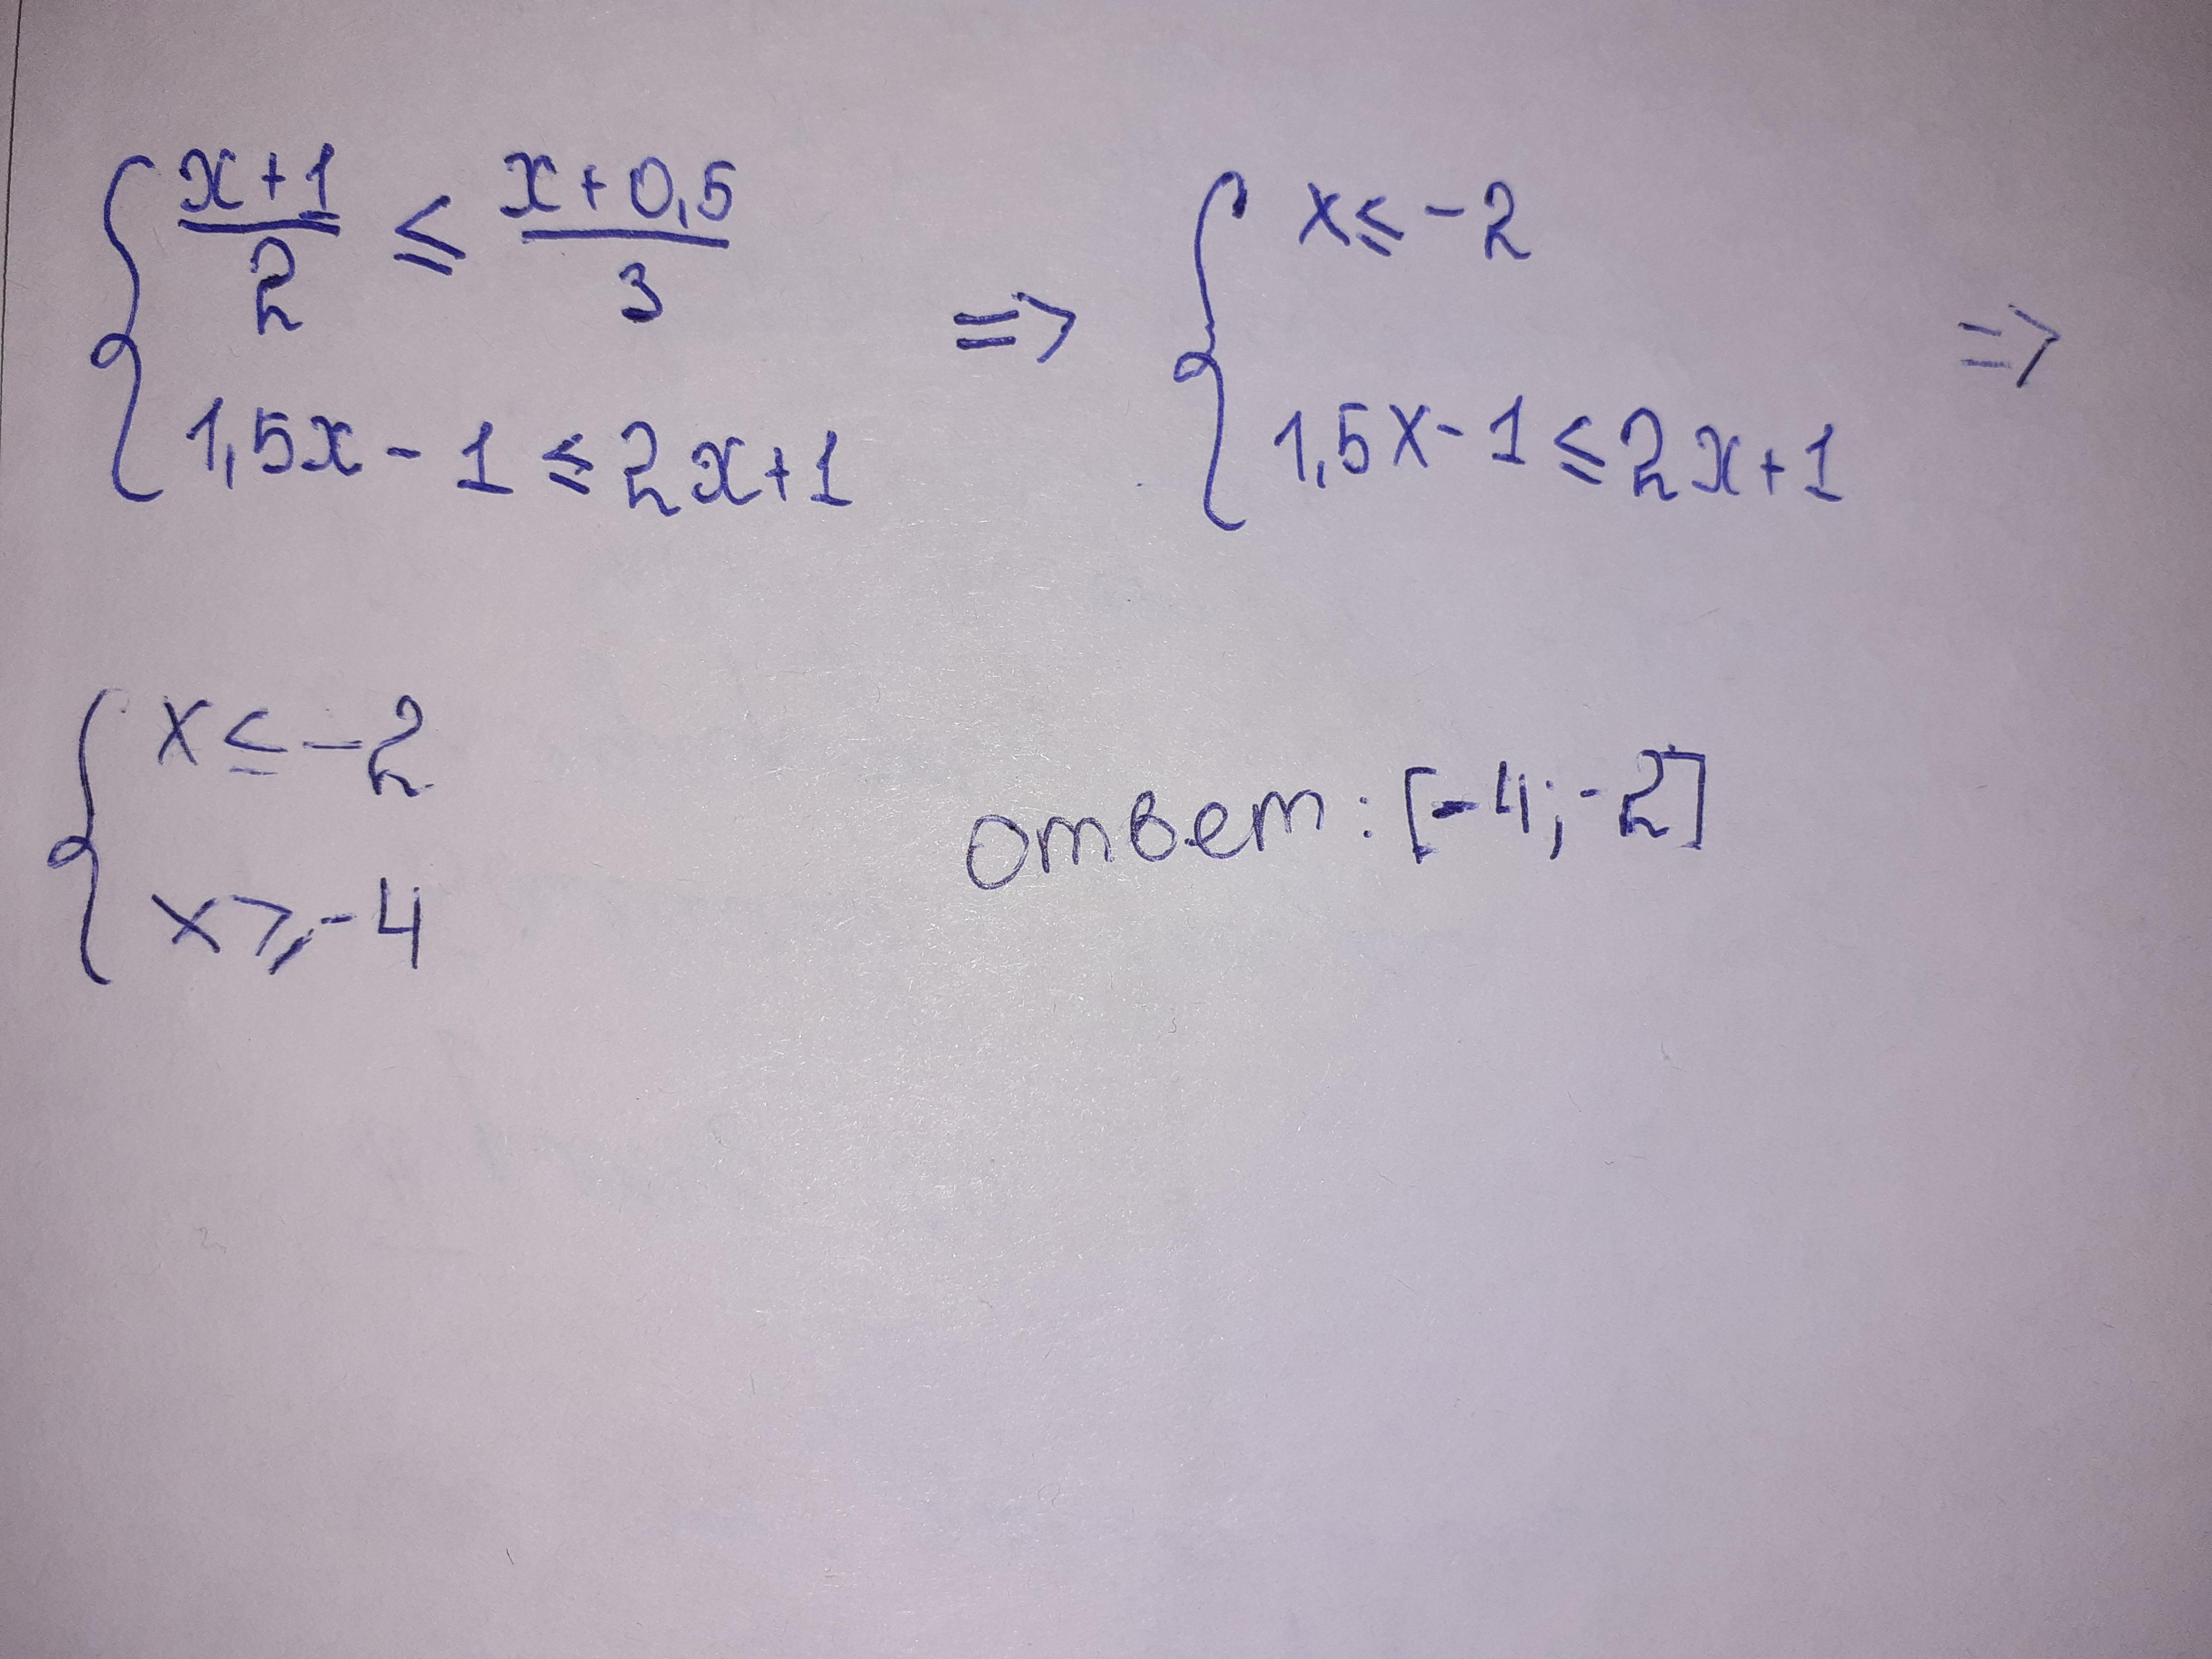 { (x+1)/2 ≤ (x+0,5)/3 => { x ≤ -2 =>
1,5x - 1 ≤ 2x+1 1,5x - 1 ≤ 2x+1
{ x ≤ -2
x ⩾ -4 ответ: [-4; -2]